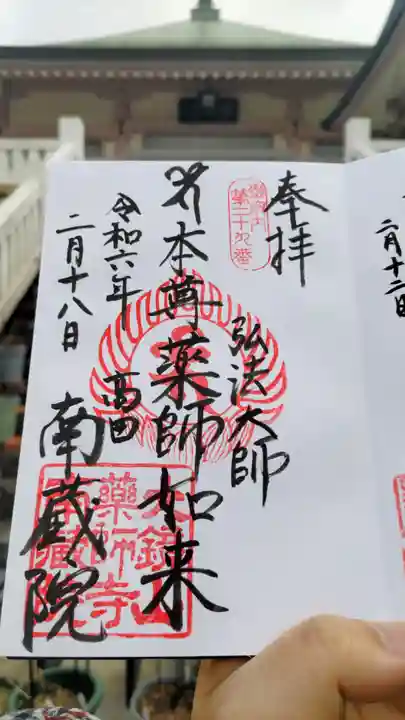 奉拝
御府内
第二十九番
弘法大師
本尊薬師如来
高田
南蔵院
令和六年
二月十八日
大鏡山
薬師寺
南蔵院
二月十二日